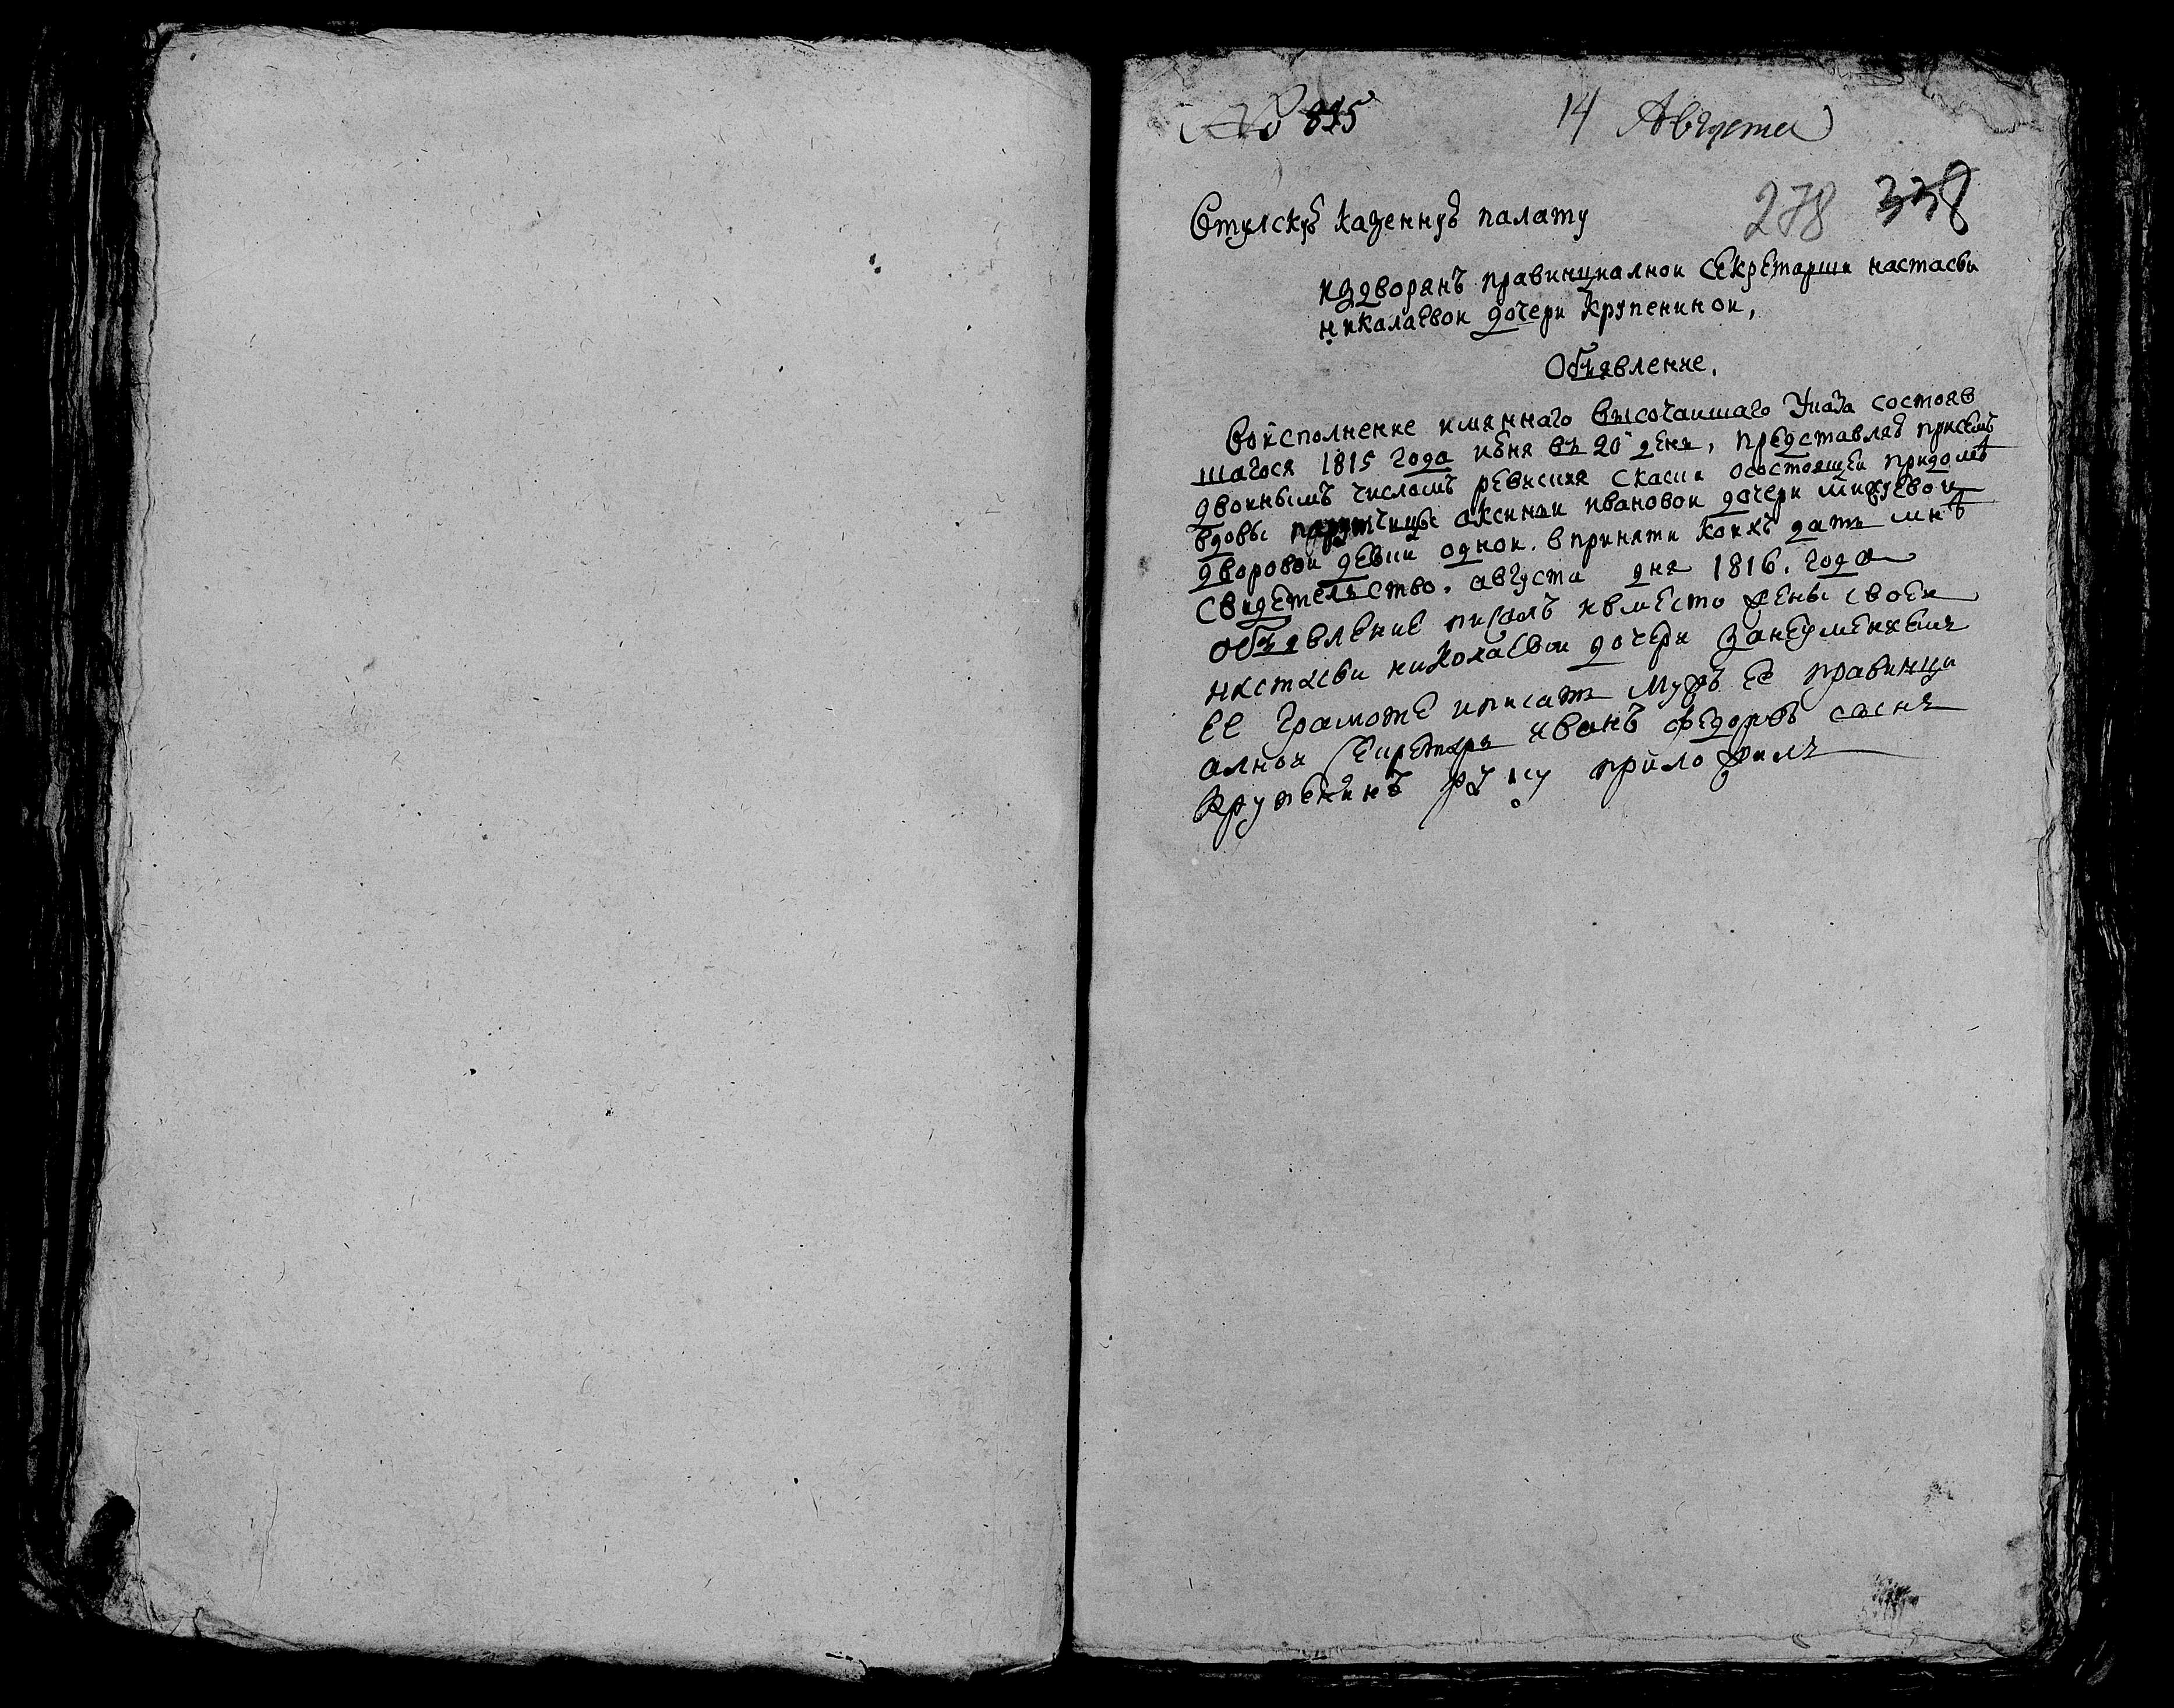 № 815 14 Августа
278 338
Втулскую казенную палату
издворянъ правинциалнои секретарши настасьи
никалаевои дочери крупениной,
Объявление.
Воисполнение имяннаго высочаишаго указа состояв
шагося 1815 года июня въ 20 день, представляю присемъ
двоинымъ числомъ ревиския скаски осостоящеи придомѣ
вдовы порутчицы аксиньи ивановои дочери
дворовои девки однои. вприняти коихъ дать мнѣ
свидетельство. августа дня 1816. года
объявление писалъ ивместо жены своеи
настасьи николаевои дочери занеумениемъ
ее грамоте иписать мужъ ее правинци
алнои секретарь иванъ федоровъ сынъ
Крупенинъ руку приложилъ